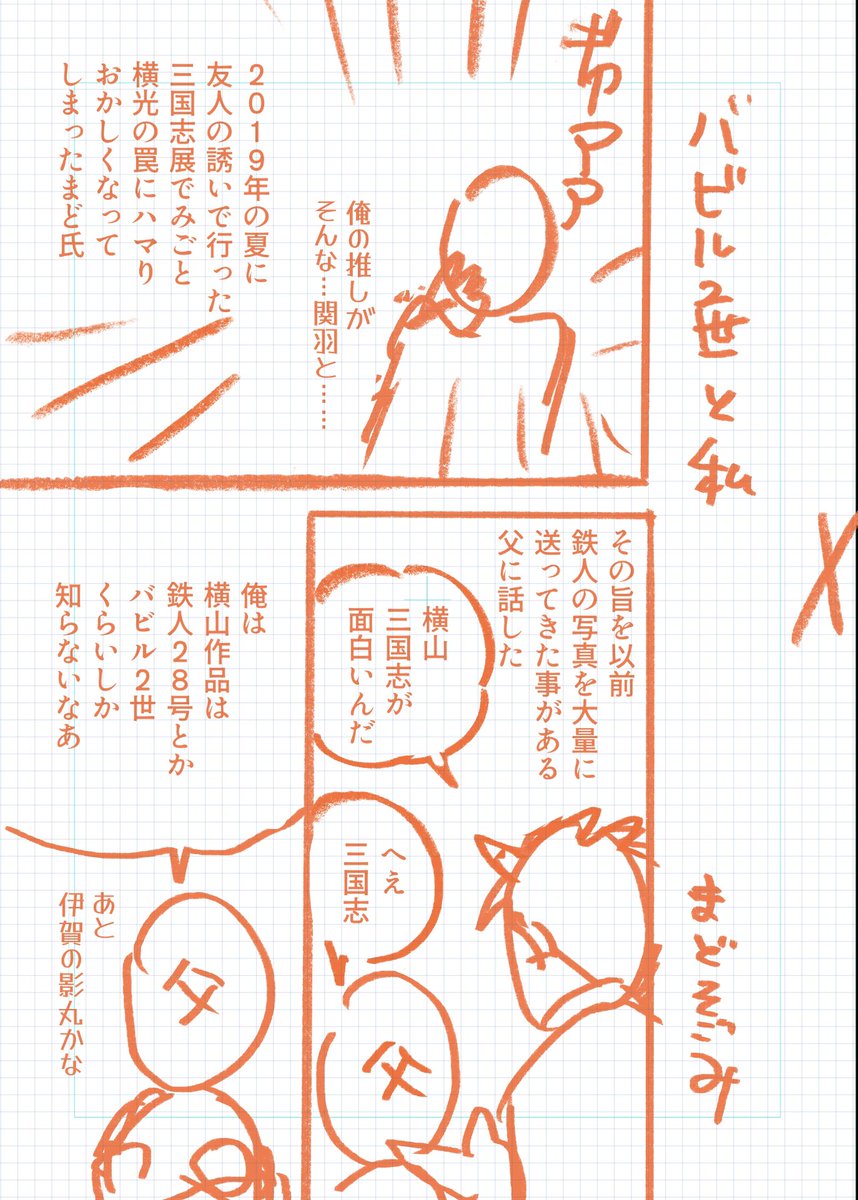 バビル2世と私
まどそごみ
ギャアアア
俺の推しが
そんな…関羽と……
2019年の夏に
友人の誘いで行った
三国志展でみごと
横光の罠にハマり
おかしくなって
しまったまど氏
その旨を以前
鉄人の写真を大量に
送ってきた事がある
父に話した
横山
三国志が
面白いんだ
へえ
三国志
父
俺は
横山作品は
鉄人28号とか
バビル2世
くらいしか
知らないなあ
父
あと
伊賀の影丸かな